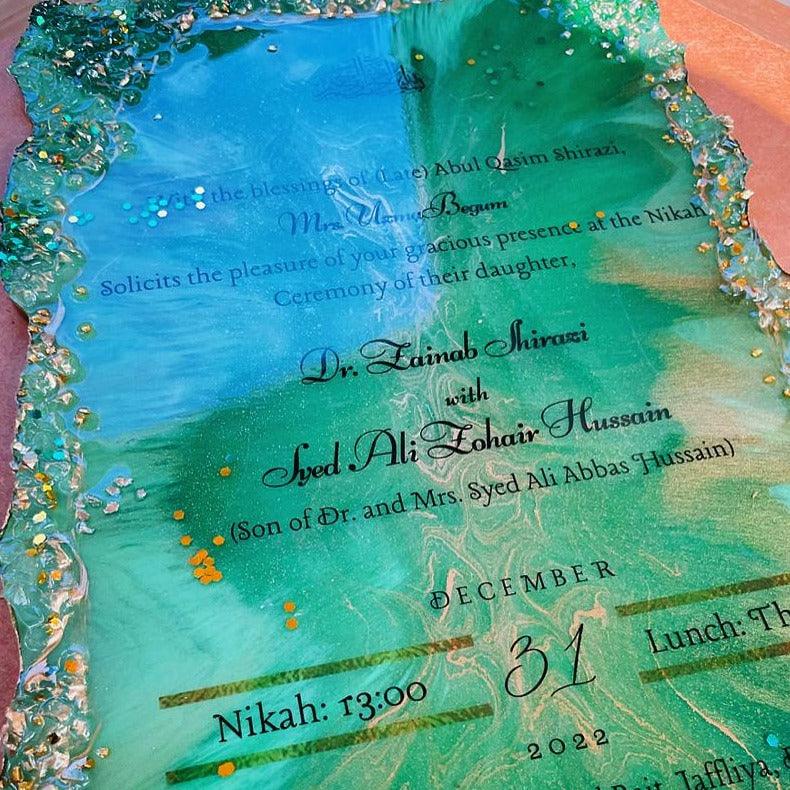 With the blessings of (Late) Abul Qasim Shirazi,
Mrs. Uzma Begum
Solicits the pleasure of your gracious presence at the Nikah
Ceremony of their daughter,
Dr. Zainab Shirazi
with
Syed Ali Zohair Hussain
(Son of Dr. and Mrs. Syed Ali Abbas Hussain)
DECEMBER
Nikah: 13:00
31
Lunch: Th
2022
Jaffliya,